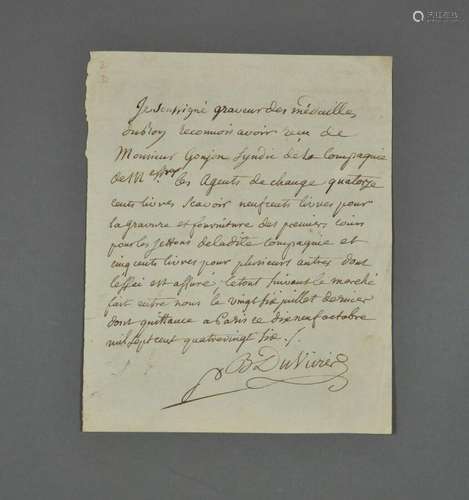 Je Soussigné graveur des médailles
du Roy reconnois avoir reçu de
Monsieur Gonjon Syndic de la Compagnie
de Mess.rs les Agents de change quatorze
cents livres Scavoir neuf cents livres pour
la gravure et fourniture des premiers coins
pour les Jettons de ladite Compagnie et
cinq cents livres pour plusieurs autres dont
l'essai est assuré le tout suivant le marché
fait entre nous le vingt six juillet dernier
dont quittance a Paris ce dix neuf octobre
mil sept cent quatre vingt six ./.
B Du Vivier